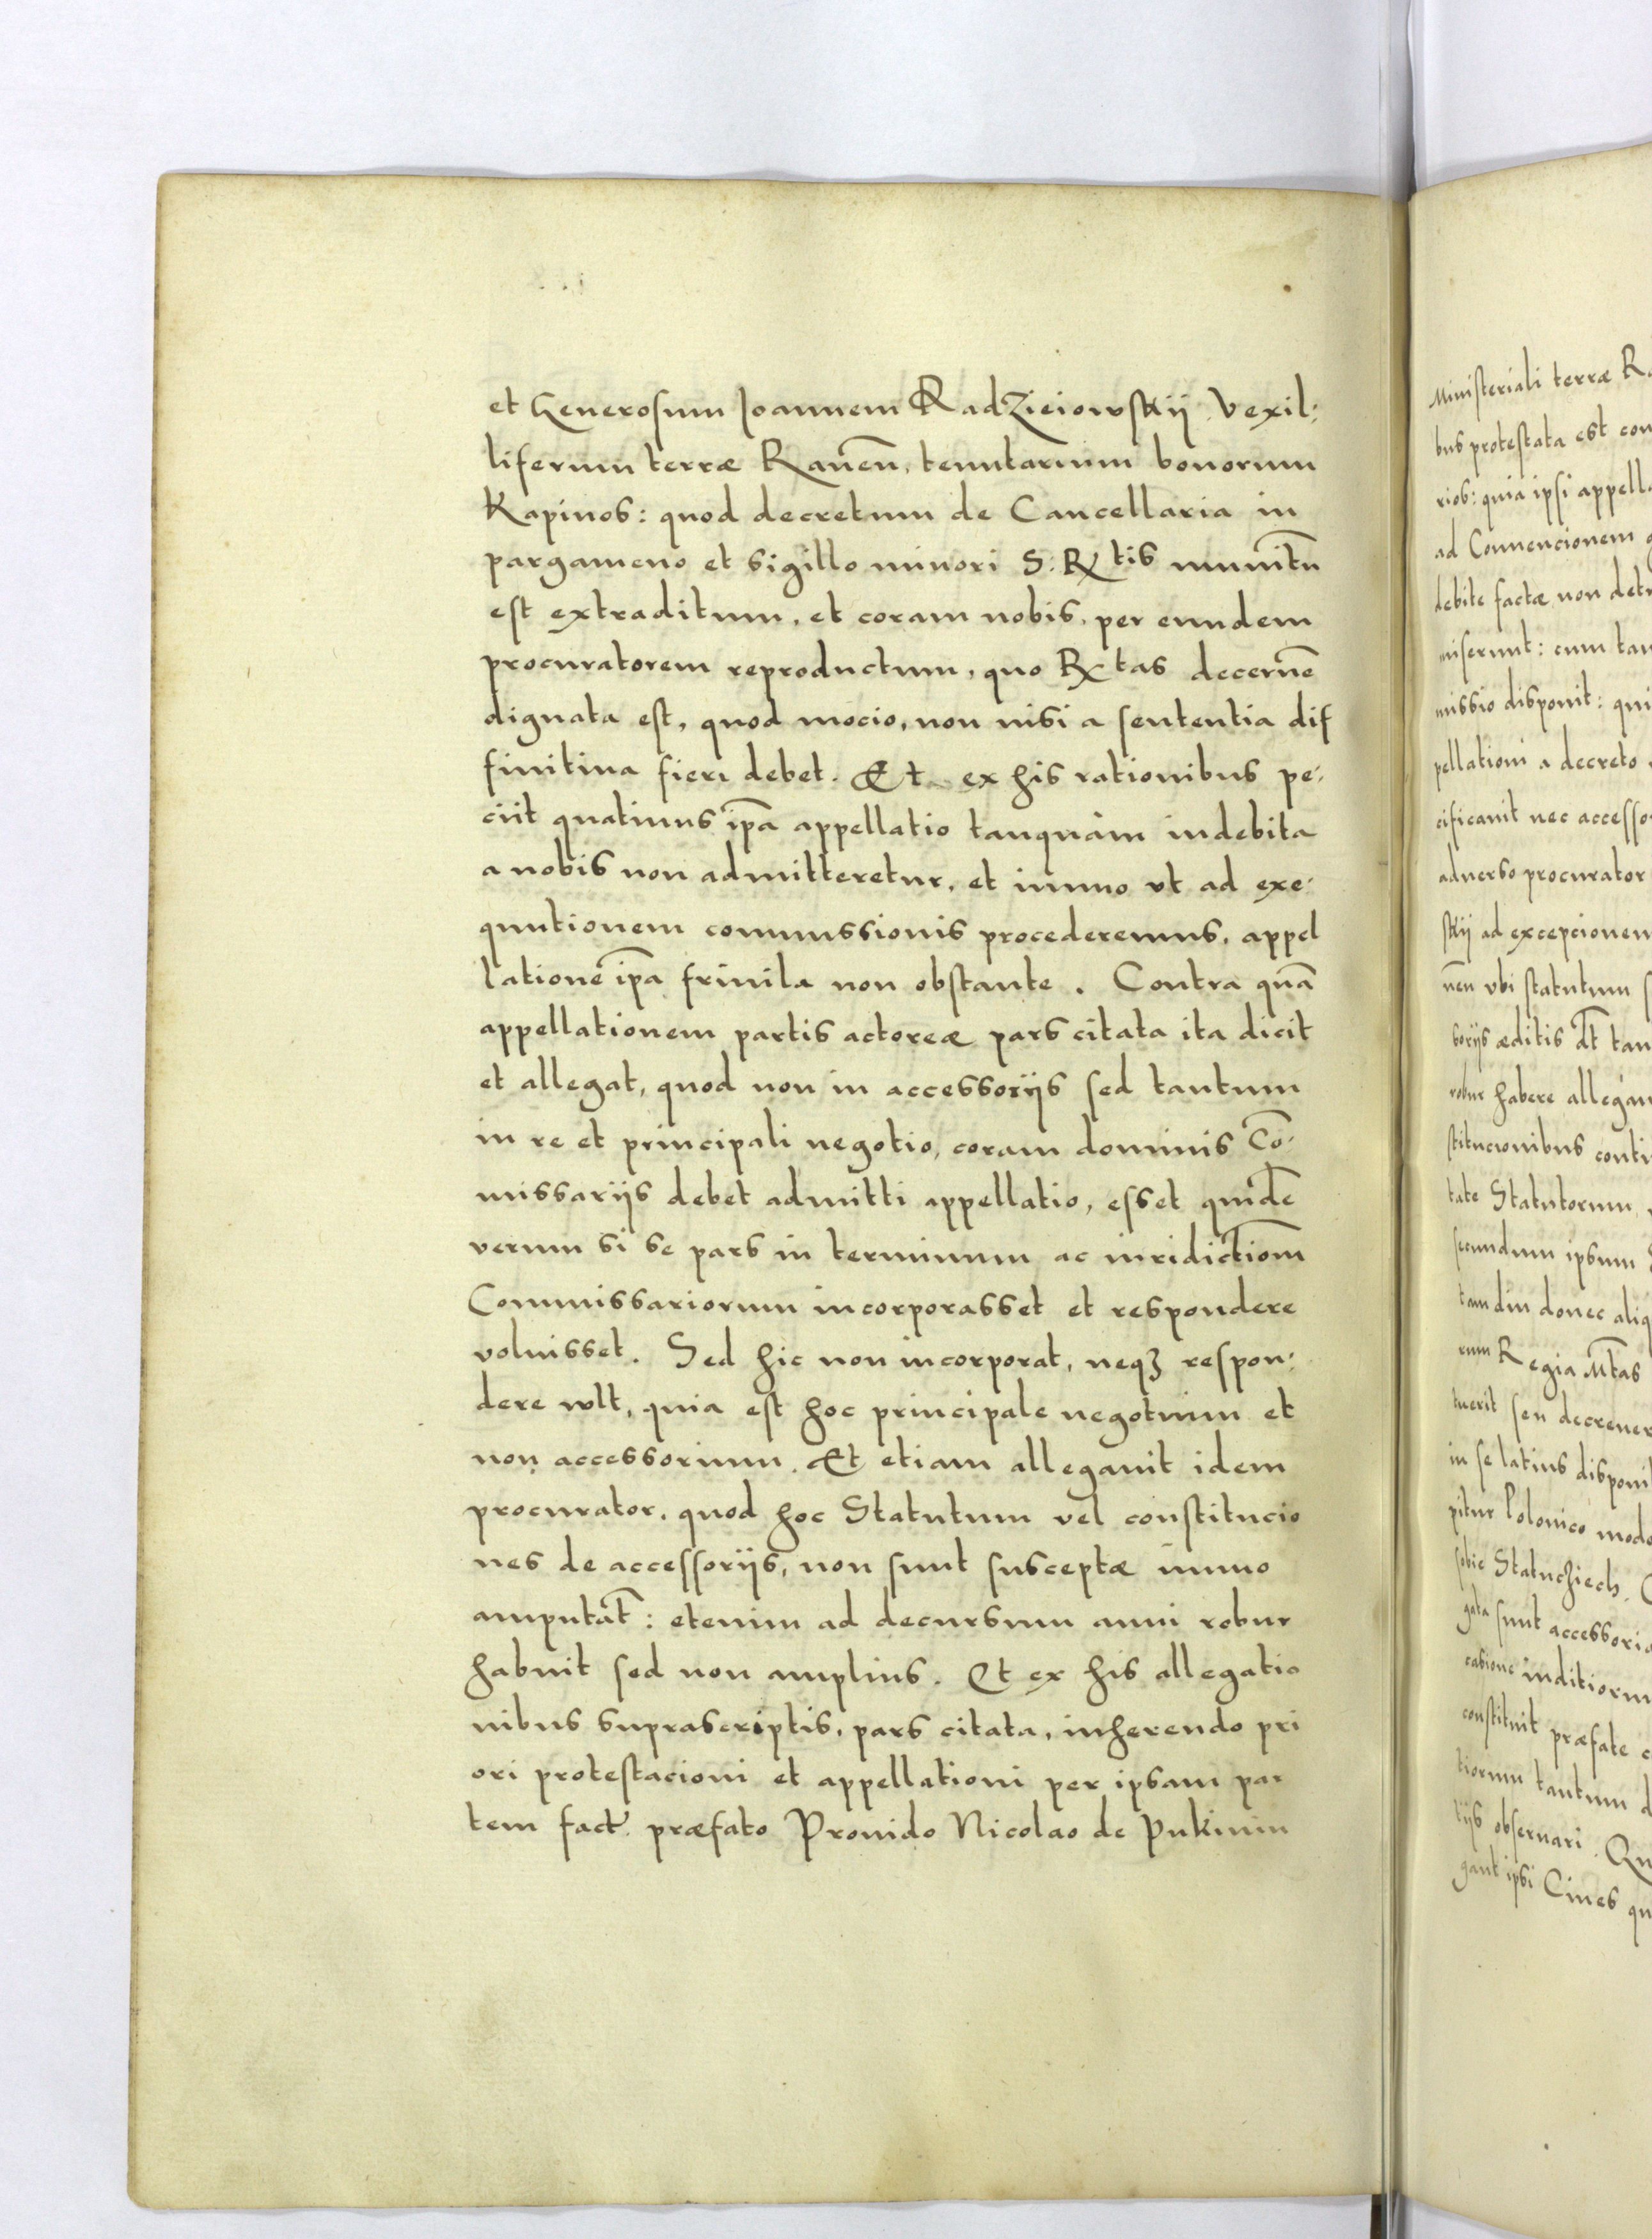 et Generosum Ioannem RadZieiowskij Vexil:
liferum terræ Raueñ, tenutarium bonorum
Kapinos: quod decretum de Cancellaria in
pargameno et sigillo minori S. Rx tis munitũ
est extraditum, et coram nobis, per eundem
procuratorem reproductum, quo Rx tas decerne͂
dignata est, quod mocio, non nisi a sententia dif
finitiua fieri debet. Et ex his rationibus pe:
ciit quatinus ip̃a appellatio tanquàm indebita
a nobis non admitteretur, et immo vt ad exe:
quutionem commissionis procederemus, appel
latione͂ ip̃a friuila non obstante. Contra quã
appellationem partis actoreæ pars citata ita dicit
et allegat, quod non in accessorijs sed tantum
in re et principali negotio, coram dominis Cõ:
missarijs debet admitti appellatio, esset quide͂
verum si se pars in terminum ac iuridictiom̃
Commissariorum incorporasset et respondere
voluisset. Sed hic non incorporat, neqꝫ respon:
dere wlt, quia est hoc principale negotium et
non accessorium. Et etiam allegauit idem
procurator, quod hoc Statutum vel constitucio
nes de accessorijs, non sunt susceptæ immo
amputat̃: etenim ad decursum anni robur
habuit sed non amplius. Et ex his allegatio
nibus suprascriptis, pars citata, inherendo pri
ori protestacioni et appellationi per ipsam par
tem fact. præfato Prouido Nicolao de Pukinin
Ministeriali terræ
bus protestata est
rios: quia ipsi
ad Conuencionem
debite factæ non
miserunt: cum
missio disponit:
pellationi a decreto
cificauit nec
aduerso procurator
skij ad
nen͂ vbi statutum
sorijs æditis dt̃
robur habere
stitucionibus
tate Statutorum
secundum ipsum
tamdiu donec
rum Regia Mt̃as
tuerit seu
in se latius
pitur Polonico
sobie Statuchiech.
gata sunt
casione inditiorum
constituit præfate
tiorum tantum
tijs obseruari.
gant ipsi Ciues